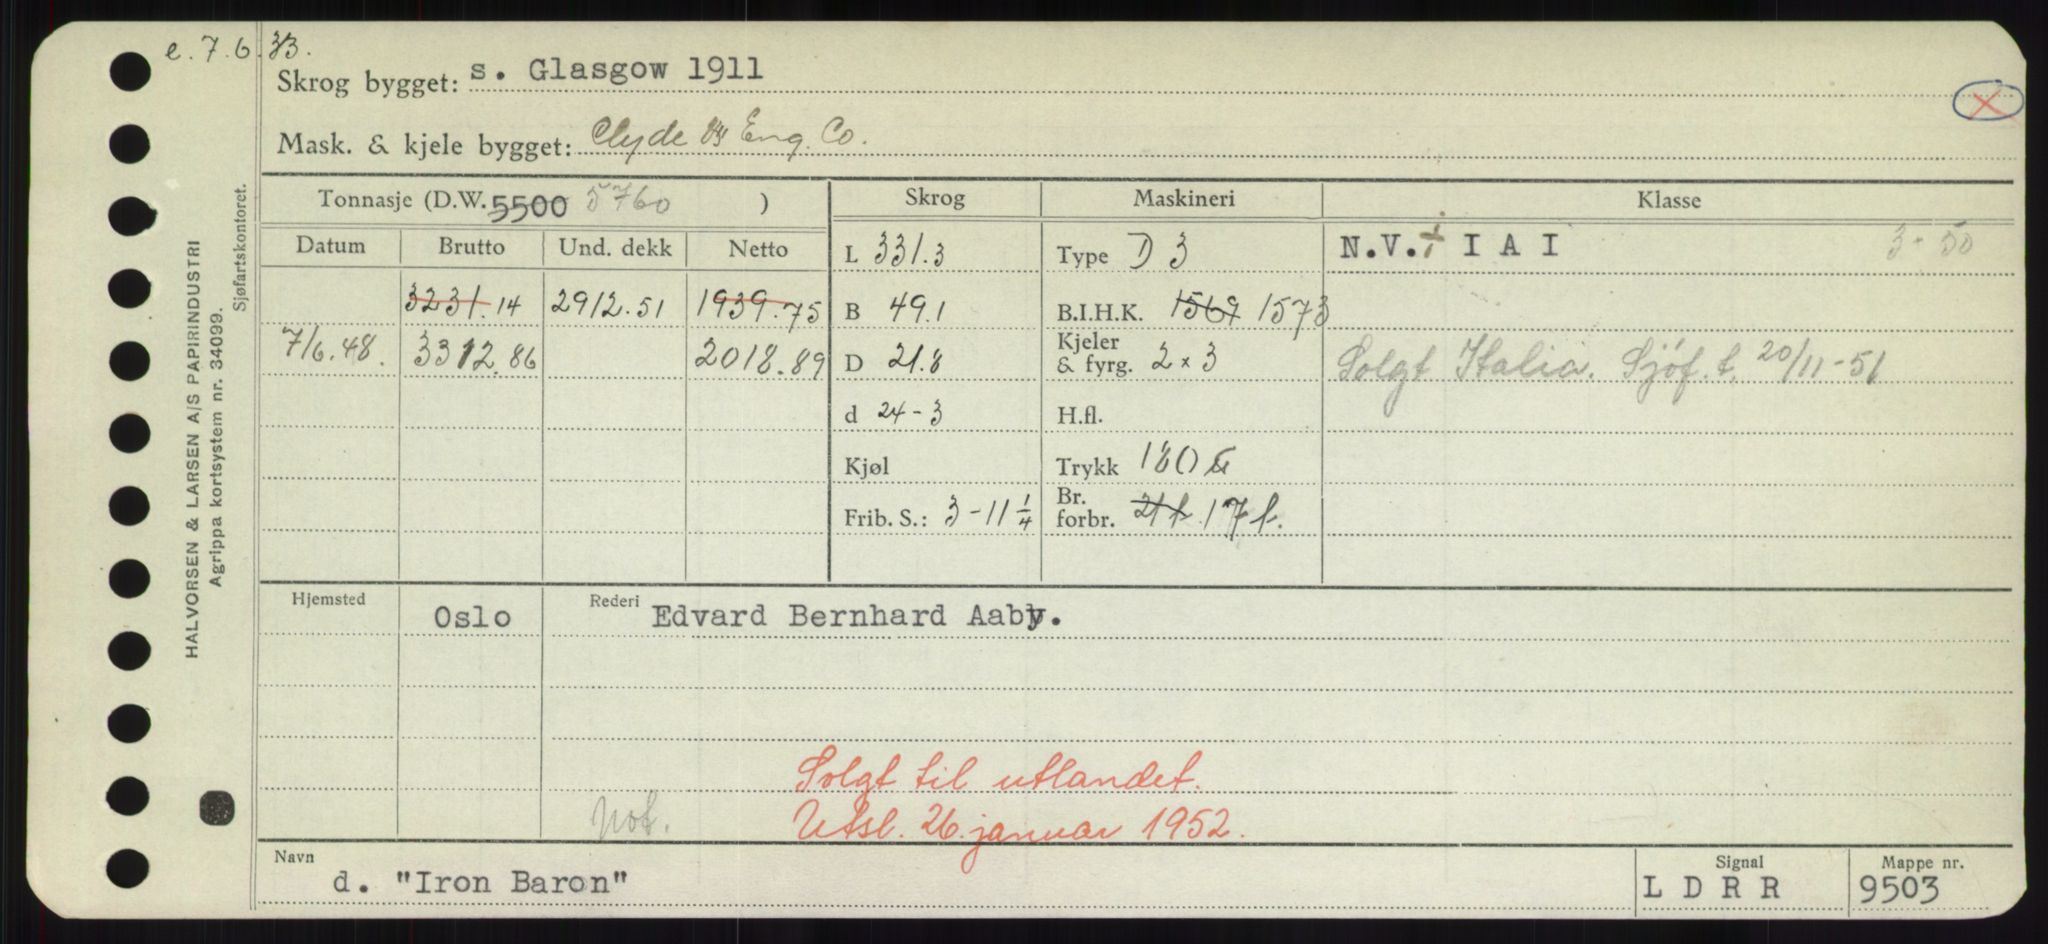 e. 7.6.33.
Skrog bygget: s. Glasgow 1911
Mask. & kjele bygget: Clyde Eng. Co.
HALVORSEN & LARSEN A/S PAPIRINDUSTRI
Agrippa kortsystem nr. 34099.
Sjøfartskontoret.
Tonnasje (D.W. 5500 5760 )
Skrog
Maskineri
Klasse
Datum Brutto Und. dekk Netto
L 331.3
Type D 3
N.V. + I A I 3-50
3231.14 2912.51 1939.75
B 49.1
B.I.H.K. 1569 1573
7/6.48. 3312.86 2018.89
D 21.8
Kjeler & fyrg. 2 x 3
Solgt Italia. Sjöf. t. 20/11-51
d 24-3
H.fl.
Kjøl
Trykk 180
Frib. S.: 3-11 1/4
Br. forbr. 21 t. 17 t.
Hjemsted Oslo
Rederi Edvard Bernhard Aaby.
Solgt til utlandet.
Not. Utsl. 26. januar 1952.
Navn d. "Iron Baron"
Signal L D R R
Mappe nr. 9503